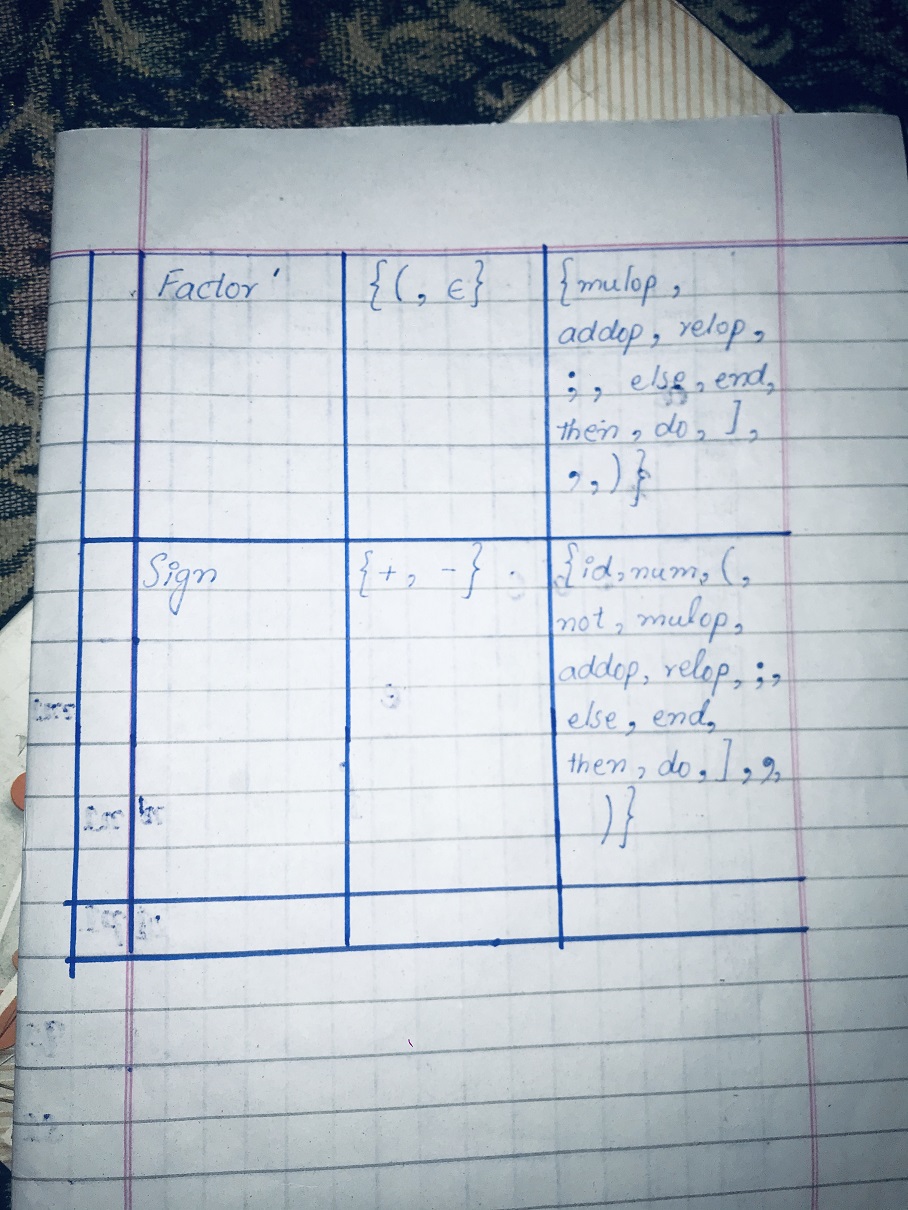 Factor' {(, ϵ} {mulop,
addop, relop,
;, else, end,
then, do, ],
,,)}
Sign {+, -} {id, num, (,
not, mulop,
addop, relop, ;,
else, end,
then, do, ], ,,
)}